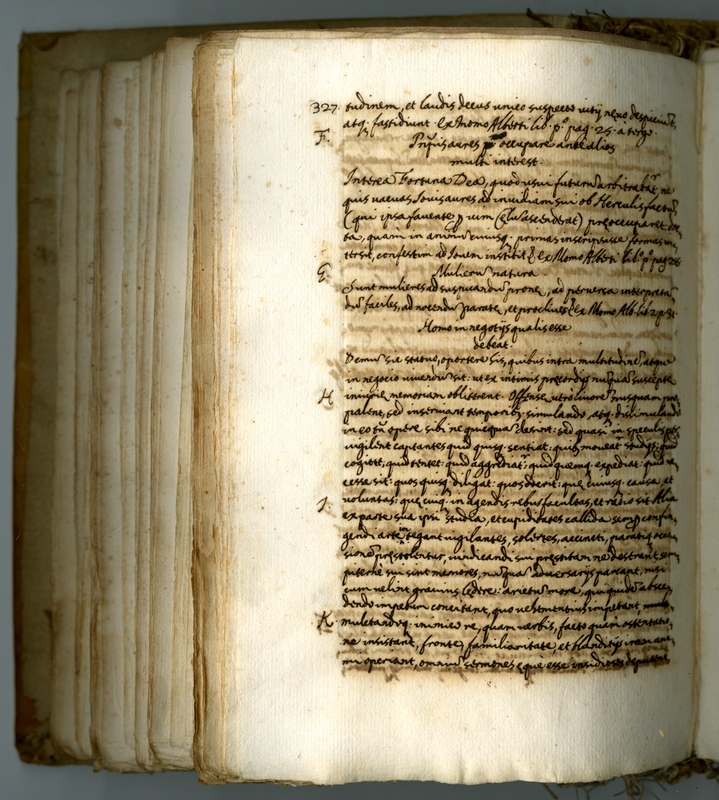 327. tudinem, et laudis decus unico suspecto vitij nexo despiciũt,
atq. fastidiunt. Ex Momo Alberti lib. pº pag. 25. a tergo.
F. aures occupare ante alios
multi interest.
Interea Fortuna Dea, quod usui futurũ arbitrabat̃, ne
quis vacuas Iovis aures ad invidiam sui ob Herculis factũ,
(qui ipsa favente ascenderat) preoccuparet:
ta, quam in animũ cuiusq. primas inscripsisse formas
confestim ad Iovem Ex Momo Alberti lib. pº pag 26
G. Mulierũ natura
Sunt mulieres ad suspicandũ prone, ad perversa interpretã
dũ faciles, ad nocendũ parate, et proclives. Ex Momo Alb. lib 2. p 31.
Homo in negotijs qualis esse
debeat.
Demũ sic statuo, oportere his, quibus intra multitudinẽ, atque
in negocio vivendũ sit: ut ex intimis precordijs nũquã suscepte
H. iniurie memoriam obliterent. Offense vero livorẽ nusquam pro
palent, sed inserviant temporibꝫ simulando, atq. dissimulando
in eo tñ opere sibi ne quicquã desint: sed quasi in speculis
vigilent captantes quid quisq. sentiat: quibꝫ moveat̃ studijs; quid
cogitet, quid tentet: quid aggrediat̃; quid quemq. expediat: quid ne
cesse sit: quos quisq. diligat: quos oderit: que cuiusq. causa, et
voluntas: que cuiq. in agendis rebus facultas, et ratio sit. Alia
I. ex parte sua ipsi studia, et cupiditates callida semꝑ confin,
gendi arte tegant vigilantes, solertes, accincti, paratiq. occa,
sionẽ prestolentur, vindicandi sui prestitam ne deserant
piterne sui sint memores, nũquã adversarijs parcant, nisi
cum velint gravius ledere: arietũ more, qui quidẽ absce
dendo impetum concitant, quo vehementius impetant,
K. muletandoq. inimico re, quam verbis, facto quam ostentatio,
ne insistant, fronte, familiaritate, et blanditijs iram
operiant, omniũ sermones eque esse insidiosos deputent